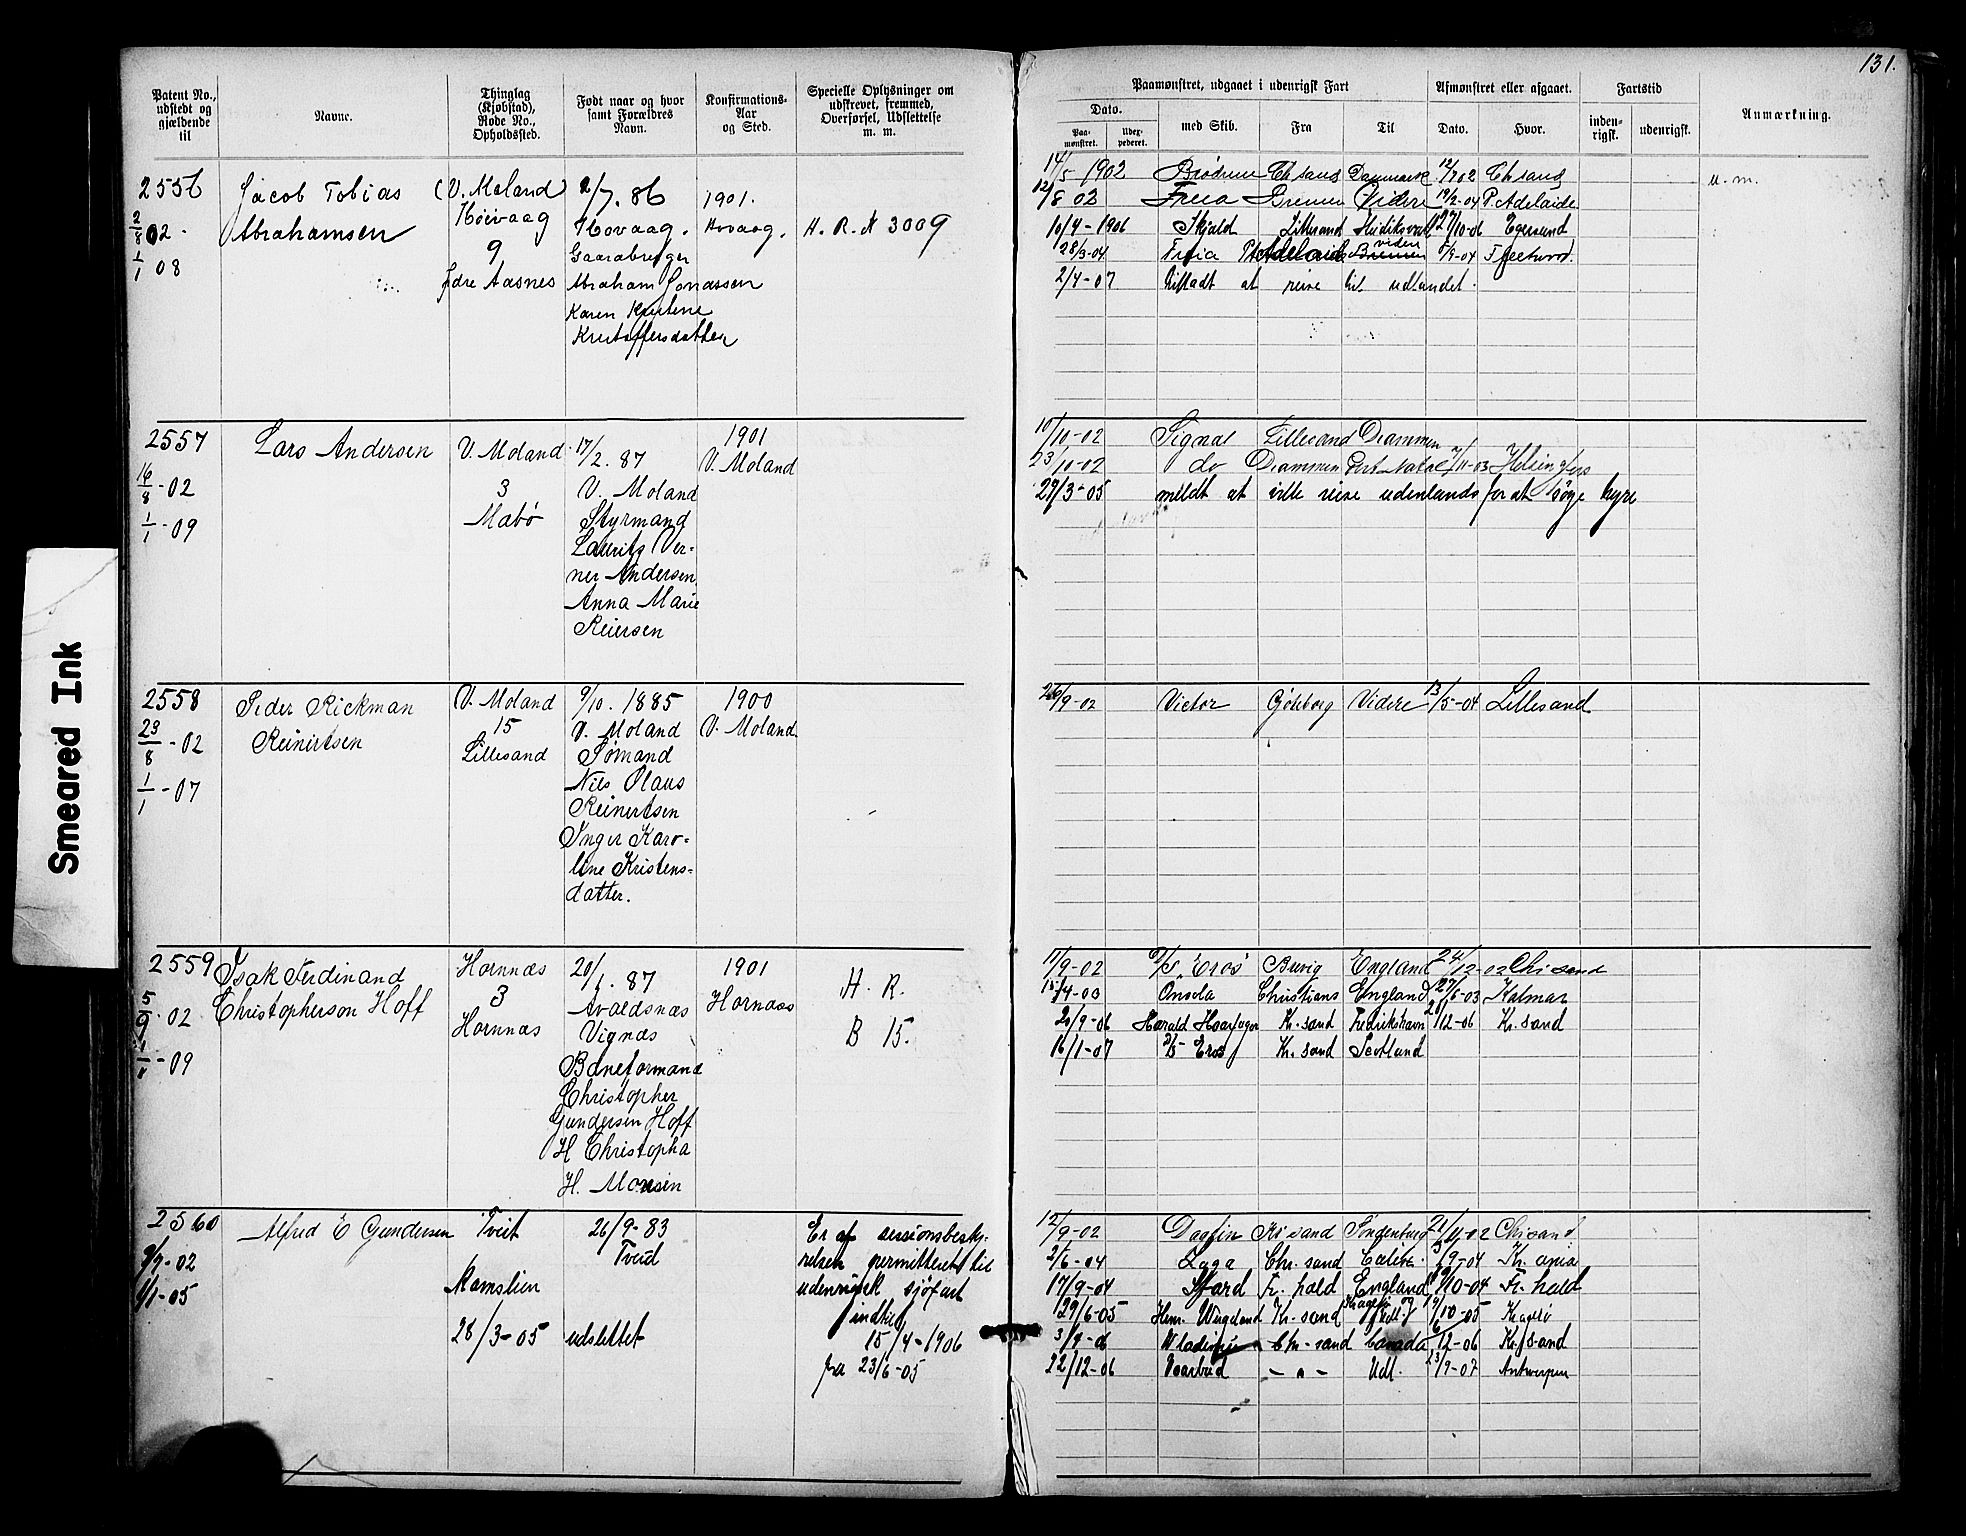 131.
Patent No., udstedt og gjældende til
Navne.
Thinglag (Kjøbstad), Rode No., Opholdssted.
Født naar og hvor samt Forældres Navn.
Konfirmations-Aar og Sted.
Specielle Oplysninger om udskrevet, fremmed, Overførsel, Udslettelse m. m.
Paamønstret, udgaaet i udenrigsk Fart
Dato.
Paa-mønstret.
Udex-pederet.
med Skib.
Fra
Til
Afmønstret eller afgaaet.
Dato.
Hvor.
Fartstid
inden-rigsk.
udenrigsk.
Anmærkning.
2556
2/8 02.
1/1 08
Jacob Tobias
Abrahamsen
(V. Moland)
Høivaag
9
Jdre Aasnes
2/7. 86
Hovaag.
Abraham Jonassen
Karen Kirstene
Kristoffersdatter
1901.
Hovaag.
H. R. N 3009
14/5 1902 Brødrene Chrsand Danmark 12/7 02 Chrsand
u. m.
12/8 02 Freia Bremen Videre 19/2-04 P. Adelaide
10/4-1906 Skjold Lillesand 27/10-06 Egersund
28/3-04 Freia Pt Adelaide Bremen viden 5/9-04 Fleetwood.
2/4-07 tilladt at reise til udlandet.
2557
16/8 -02
1/1 -09
Lars Andersen
V. Moland
3
Mabø
17/2. 87
V. Moland
Styrmand
Lauritz Ver-
ner Andersen
Anna Marie
Reiersen
1901
V. Moland
10/10-02 Signal Lillesand Drammen
23/10-02 do Drammen Port Natal 7/11-03 Helsingfors
29/3-05 meldt at ville reise udenlands for at søge hyre
2558
23/8 -02
1/1 -07
Peder Rickman
Reinertsen
V. Moland
15
Lillesand
9/10. 1885
V. Moland
Sømand
Nils Olaus
Reinertsen
Inger Karo-
line Kristens-
datter.
1900
V. Moland
26/9-02 Victor Göteborg Videre 13/5-04 Lillesand
2559
5/9 -02
1/1 -09
Isak Ferdinand
Christopherson Hoff
Hornnæs
3
Hornnæs
20/1. 87
Avaldsnæs
Vignæs
Baneformand
Christopher
Gundersen Hoff
H Christopha
H. Monsen
1901
Hornnæs
H. R.
B 15.
17/9-02 D/S "Eros" Brevig England 24/12-02 Chrisand
15/4-03 Onsola Christians England 27/6-03 Kalmar
20/9-06 Harald Haarfager Kr. sand Fredrikshavn 12-06 Kr. sand
16/1-07 D/S Eros Kr. sand Scotland
2560
9/9-02
1/1-05
Alfred E Gundersen
Tveit
Ramslien
28/3-05 udslettet
26/9-83
Tveid
Er af sessionsbesty-
relsen permitteret til
udenrigsk sjøfart
indtil
15/4-1906
fra 23/6-05
12/9-02 Dagfin Krsand Sondenburg 21/11-02 Chrisand
2/6-04 Laga Chr. sand 3/9-04 Kr. ania
17/9-04 Fjord Fr. hald England 10-04 Fr. hald
29/6-05 Henr. Wergeland Kr. sand 19/10-05 Kragerø
3/9-06 Wladimir Chr. sand Canada 6/12-06 Kr. sand
22/12-06 Vaarbud - " - Udl. 23/9-07 Antwerpen
Smeared Ink